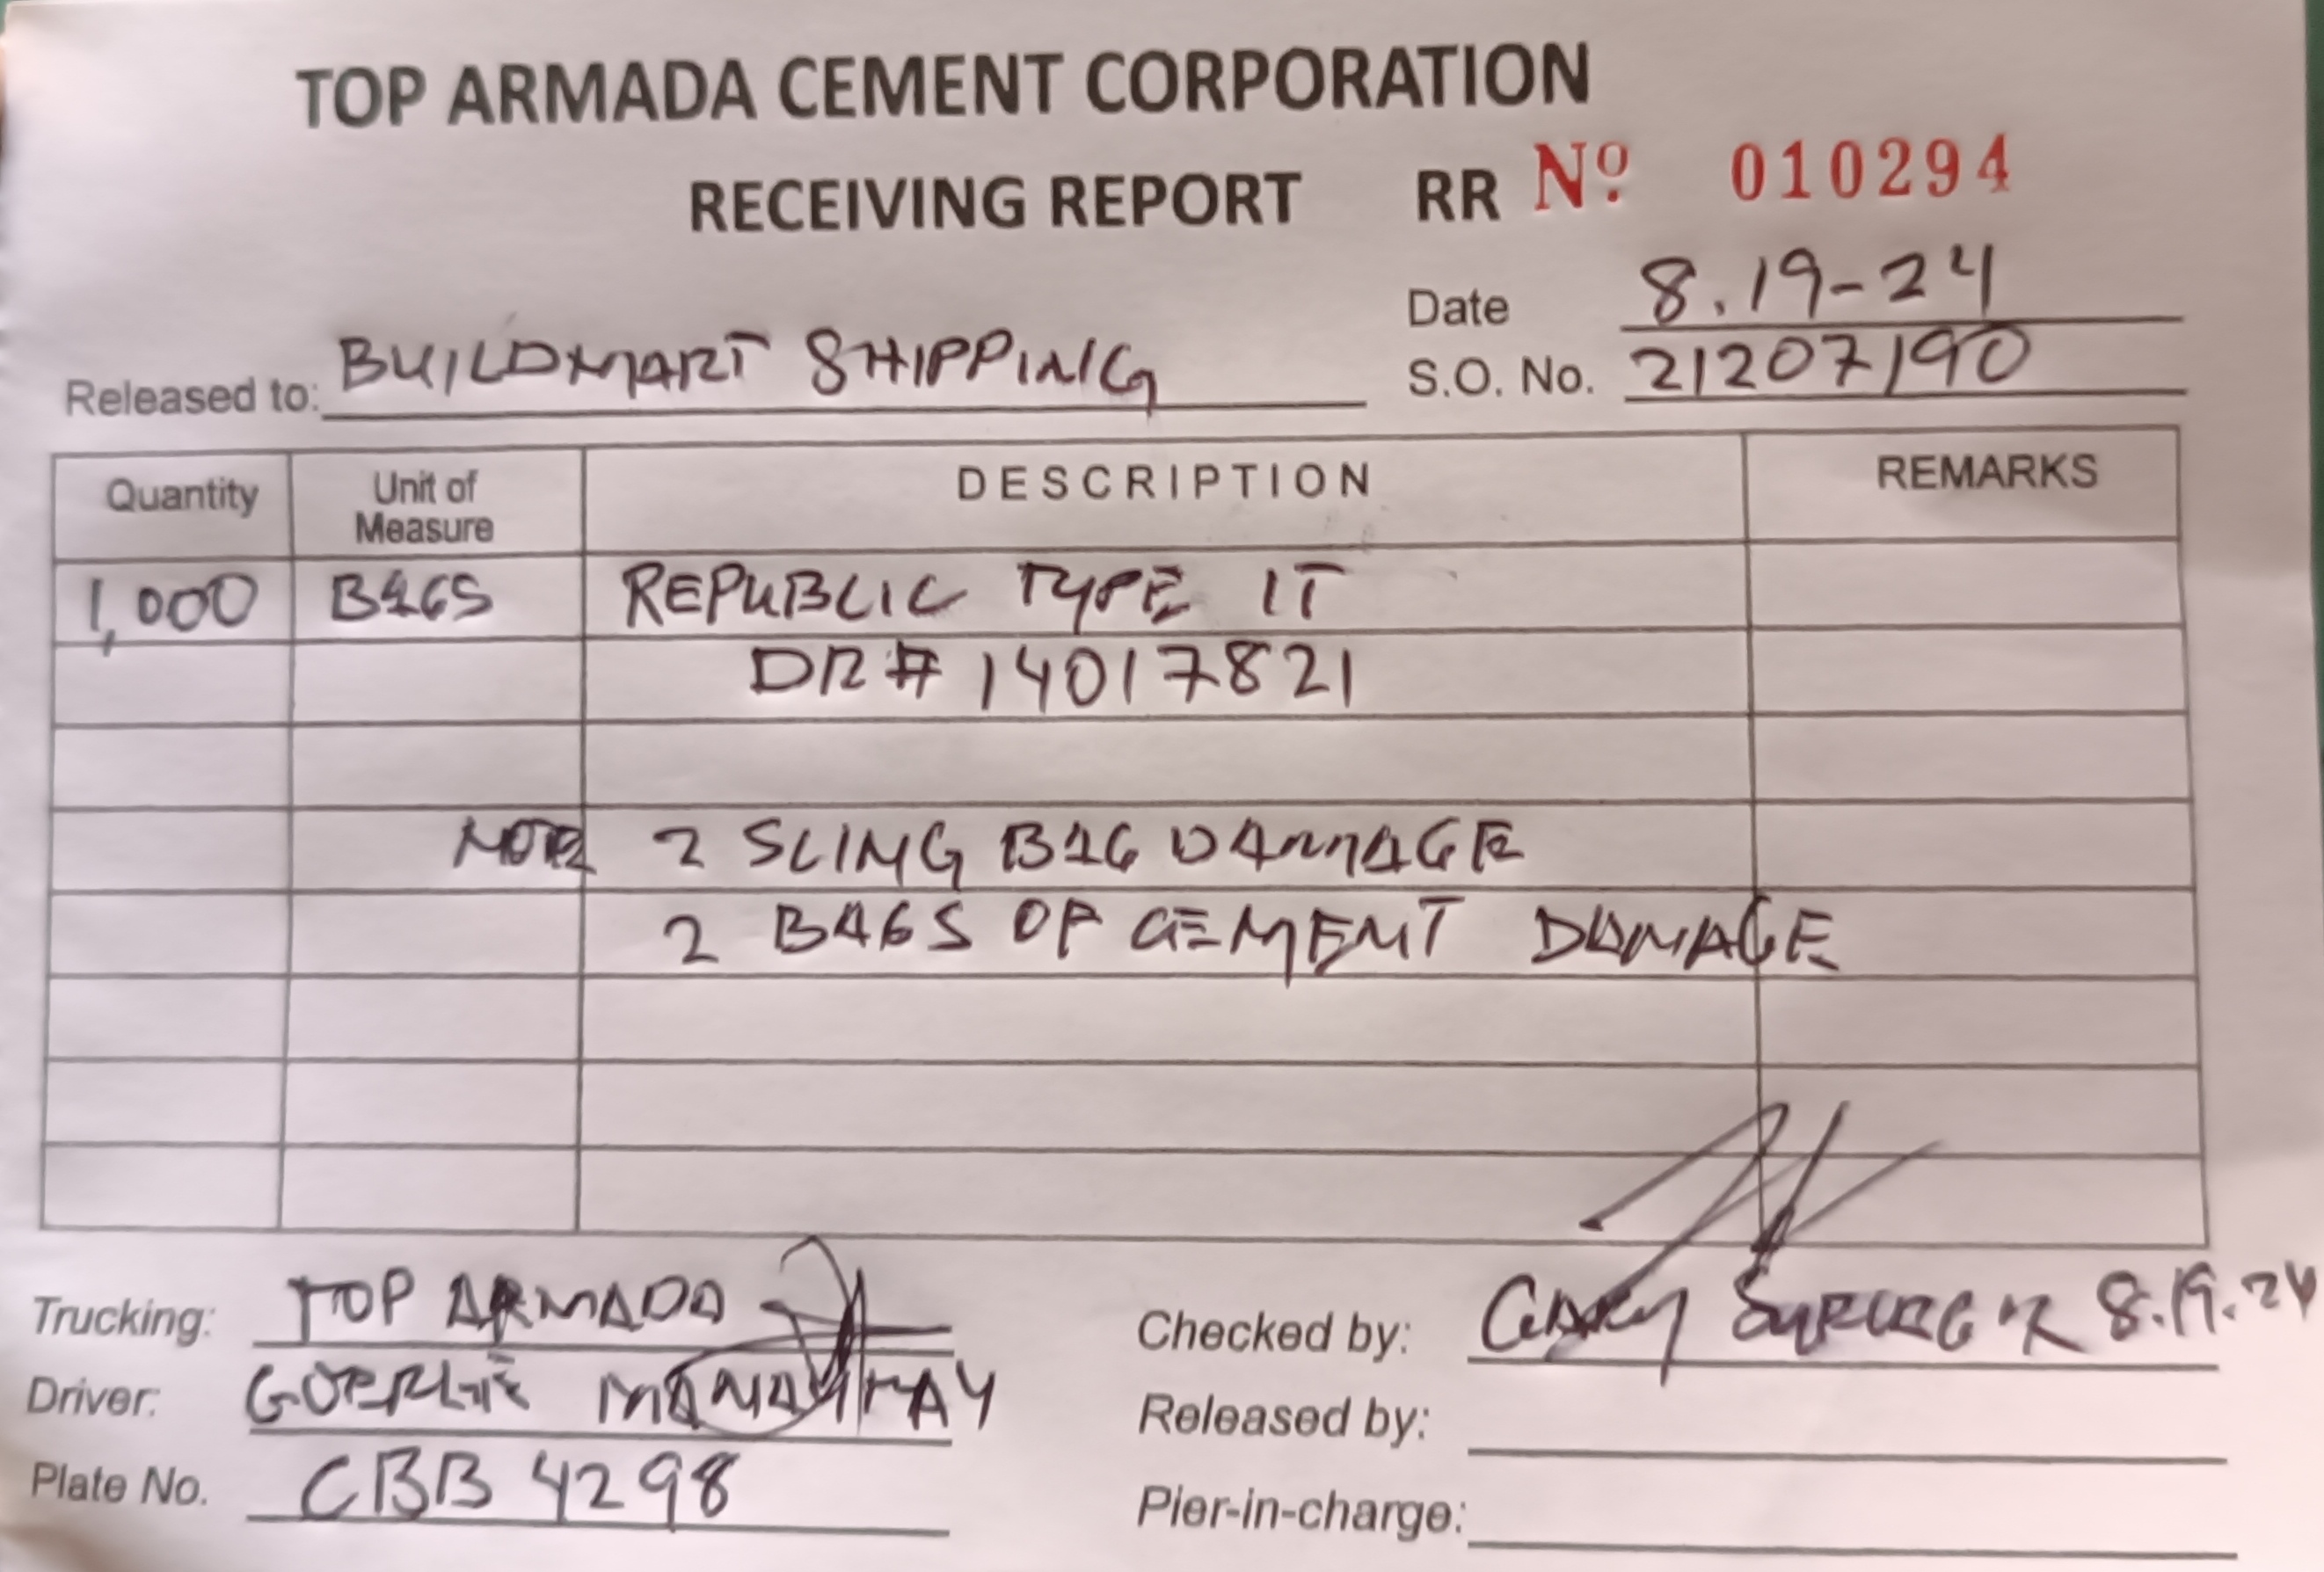 TOP ARMADA CEMENT CORPORATION
RECEIVING REPORT RR Nº 010294
Date 8.19-24
Released to: BUILDMART SHIPPING
S.O. No. 21207190
Quantity Unit of Measure DESCRIPTION REMARKS
1,000 BAGS REPUBLIC TYPE IT
DR# 14017821
NOTE 2 SLING BAG DAMAGE
2 BAGS OF CEMENT DAMAGE
Trucking: TOP ARMADA
Checked by: GARY 8.19.24
Driver:
Released by:
Plate No. CBB 4298
Pier-in-charge: